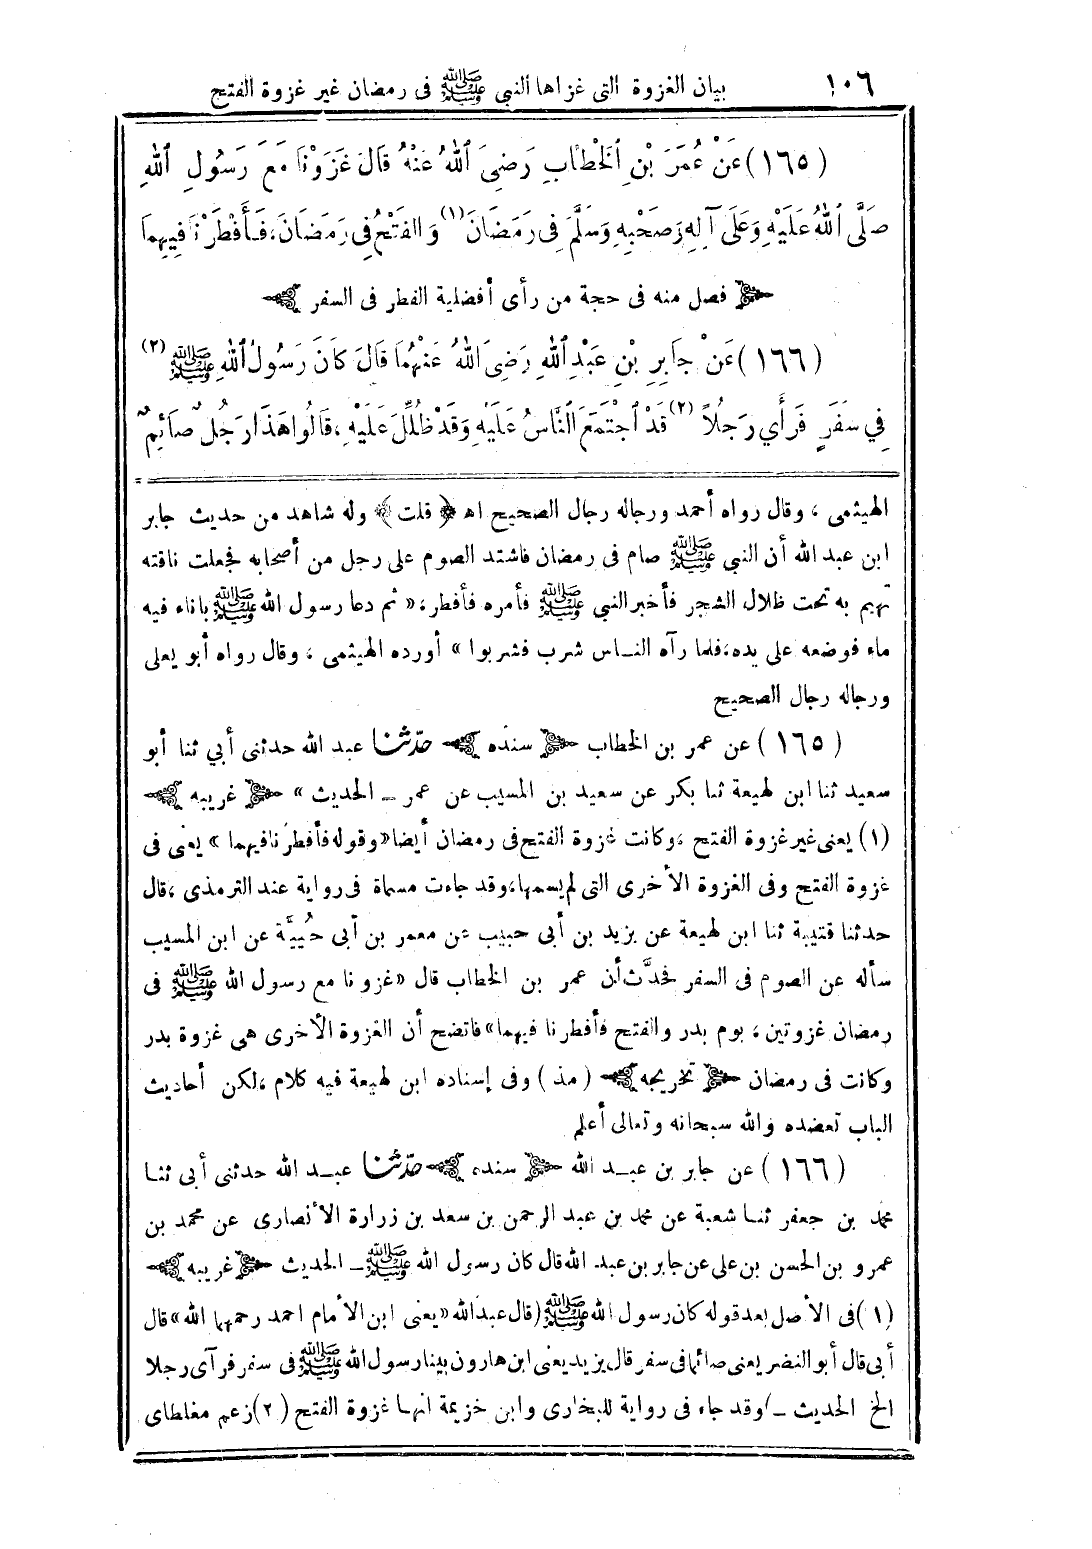 ١٠٦ بيان الغزوة التى غزاها النبي ﷺ فى رمضان غير غزوة الفتح
(١٦٥) عَنْ عُمَرَ بْنِ الْخَطَّابِ رَضِيَ اللهُ عَنْهُ قَالَ غَزَوْنَا مَعَ رَسُولِ اللهِ
صَلَّى اللهُ عَلَيْهِ وَعَلَى آلِهِ وَصَحْبِهِ وَسَلَّمَ فِى رَمَضَانَ (١) وَالْفَتْحُ فِى رَمَضَانَ، فَأَفْطَرْنَا فِيهِمَا
﴿ فصل منه فى حجة من رأى أفضلية الفطر فى السفر ﴾
(١٦٦) عَنْ جَابِرِ بْنِ عَبْدِ اللهِ رَضِيَ اللهُ عَنْهُمَا قَالَ كَانَ رَسُولُ اللهِ ﷺ (٢)
فِي سَفَرٍ فَرَأَي رَجُلاً (٢) قَدْ اجْتَمَعَ النَّاسُ عَلَيْهِ وَقَدْ ظُلِّلَ عَلَيْهِ، قَالُوا هَذَا رَجُلٌ صَائِمٌ
الهيثمى ، وقال رواه أحمد ورجاله رجال الصحيح اه ﴿ قلت ﴾ وله شاهد من حديث جابر
ابن عبد الله أن النبي ﷺ صام فى رمضان فاشتد الصوم على رجل من أصحابه فجعلت ناقته
تهيم به تحت ظلال الشجر فأخبر النبي ﷺ فأمره فأفطر، « ثم دعا رسول الله ﷺ باناء فيه
ماء فوضعه على يده، فلما رآه الناس شرب فشربوا » أورده الهيثمى ، وقال رواه أبو يعلى
ورجاله رجال الصحيح
(١٦٥) عن عمر بن الخطاب ﴿ سنده ﴾ حدّثنا عبد الله حدثنى أبي ثنا أبو
سعيد ثنا ابن لهيعة ثنا بكر عن سعيد بن المسيب عن عمر ــ الحديث » ﴿ غريبه ﴾
(١) يعنى غير غزوة الفتح ، وكانت غزوة الفتح فى رمضان أيضا « وقوله فأفطرنا فيهما » يعنى فى
غزوة الفتح وفى الغزوة الأخرى التى لم يسمها، وقد جاءت مسماة فى رواية عند الترمذى ، قال
حدثنا قتيبة ثنا ابن لهيعة عن يزيد بن أبى حبيب عن معمر بن أبى حُيَيَّة عن ابن المسيب
سأله عن الصوم فى السفر فحدَّث أن عمر بن الخطاب قال « غزونا مع رسول الله ﷺ فى
رمضان غزوتين ، يوم بدر والفتح فأفطرنا فيهما » فاتضح أن الغزوة الأخرى هى غزوة بدر
وكانت فى رمضان ﴿ تخريجه ﴾ ( مذ ) وفى إسناده ابن لهيعة فيه كلام ، لكن أحاديث
الباب تعضده والله سبحانه وتعالى أعلم
(١٦٦) عن جابر بن عبد الله ﴿ سنده ﴾ حدّثنا عبد الله حدثنى أبى ثنا
محمد بن جعفر ثنا شعبة عن محمد بن عبد الرحمن بن سعد بن زرارة الأنصارى عن محمد بن
عمرو بن الحسن بن على عن جابر بن عبد الله قال كان رسول الله ﷺ ــ الحديث ﴿ غريبه ﴾
(١) فى الأصل بعد قوله كان رسول الله ﷺ (قال عبد الله « يعنى ابن الأمام احمد رحمهما الله » قال
أبى قال أبو النضر يعنى صائما فى سفر قال يزيد يعنى ابن هارون بينا رسول الله ﷺ فى سفر فرآى رجلا
الخ الحديث ــ) وقد جاء فى رواية للبخارى وابن خزيمة انها غزوة الفتح (٢) زعم مغلطاى